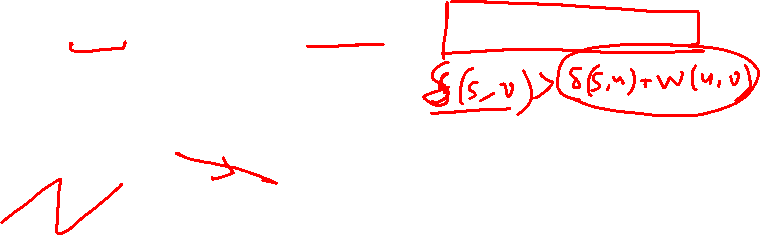 δ(s,v) > δ(s,u)+w(u,v)